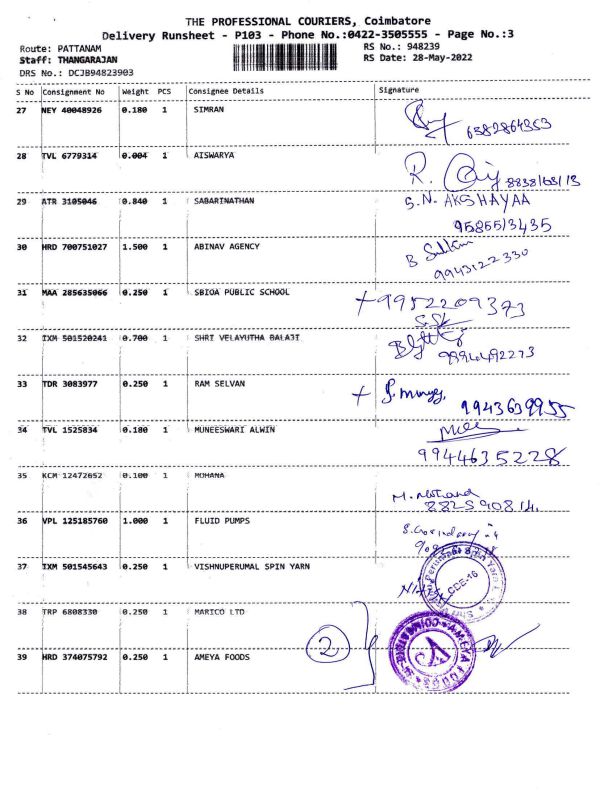 THE PROFESSIONAL COURIERS, Coimbatore
Delivery Runsheet - P103 - Phone No.:0422-3505555 - Page No.:3
Route: PATTANAM RS No.: 948239
Staff: THANGARAJAN RS Date: 28-May-2022
DRS No.: DCJB94823903
S No Consignment No Weight PCS Consignee Details Signature
27 NEY 40048926 0.180 1 SIMRAN
6382864353
28 TVL 6779314 0.004 1 AISWARYA
R.
29 ATR 3105046 0.840 1 SABARINATHAN S.N. AKSHAYAA
9585513435
30 HRD 700751027 1.500 1 ABINAV AGENCY B
9943122330
31 MAA 285635066 0.250 1 SBIOA PUBLIC SCHOOL +9952209373
32 IXM 501520241 0.700 1 SHRI VELAYUTHA BALAJI
9994492273
33 TDR 3083977 0.250 1 RAM SELVAN
9943639955
34 TVL 1525834 0.180 1 MUNEESWARI ALWIN
9944635228
35 KCM 12472652 0.100 1 MOHANA
M.
36 VPL 125185760 1.000 1 FLUID PUMPS
37 IXM 501545643 0.250 1 VISHNUPERUMAL SPIN YARN
CDE-16
38 TRP 6808330 0.250 1 MARICO LTD
2
39 HRD 374075792 0.250 1 AMEYA FOODS
AMEYA FOODS